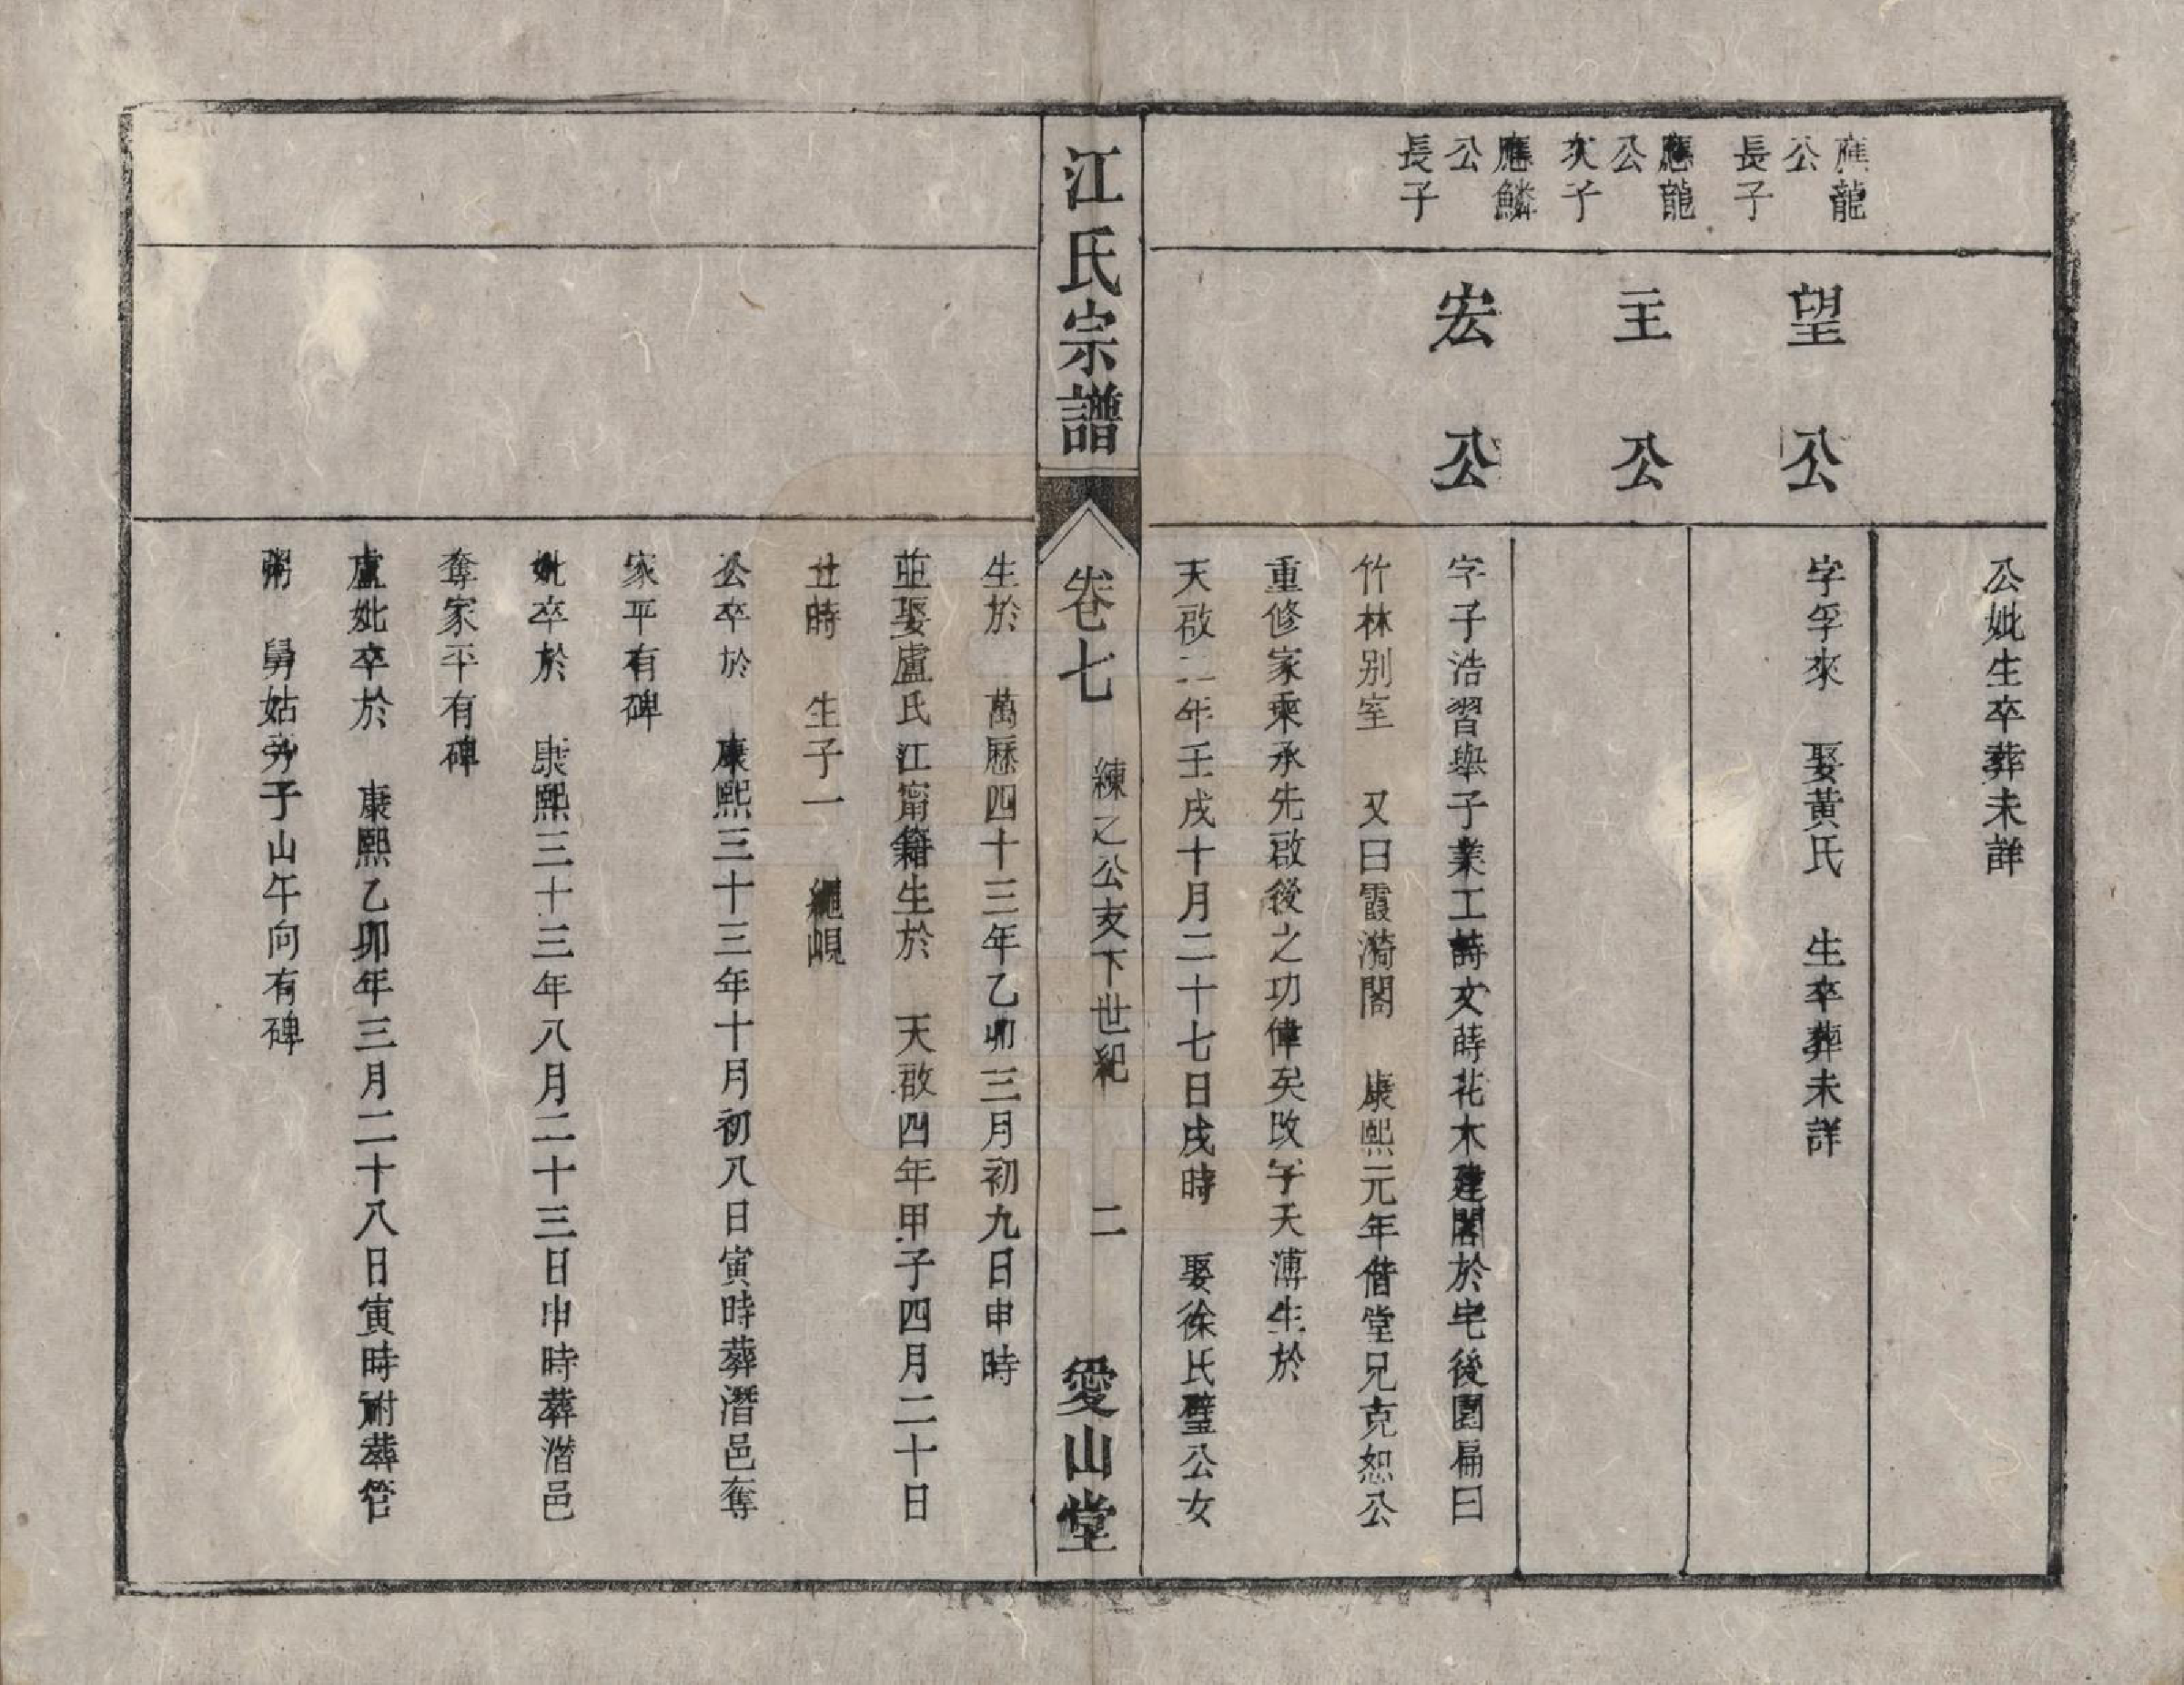 公妣生卒葬未詳
應龍
公
長子
望公
字孚來　娶黃氏　生卒葬未詳
應龍
公
次子
主公
應鱗
公
長子
宏公
字子浩習舉子業工詩文蒔花木建閣於宅後園扁曰
竹林别室　又曰霞漪閣　康熙元年偕堂兄克恕公
重修家乘承先啟後之功偉矣改字天溥生於
天啟二年壬戌十月二十七日戌時　娶徐氏璧公女
江氏宗譜
卷七　練之公支下世紀　二
愛山堂
生於　萬歷四十三年乙卯三月初九日申時
並娶盧氏江甯籍生於　天啟四年甲子四月二十日
丑時　生子一　繩峴
公卒於　康熙三十三年十月初八日寅時葬潛邑奪
家平有碑
妣卒於　康熙三十三年八月二十三日申時葬潛邑
奪家平有碑
盧妣卒於　康熙乙卯年三月二十八日寅時祔葬管
粥　舅姑旁子山午向有碑